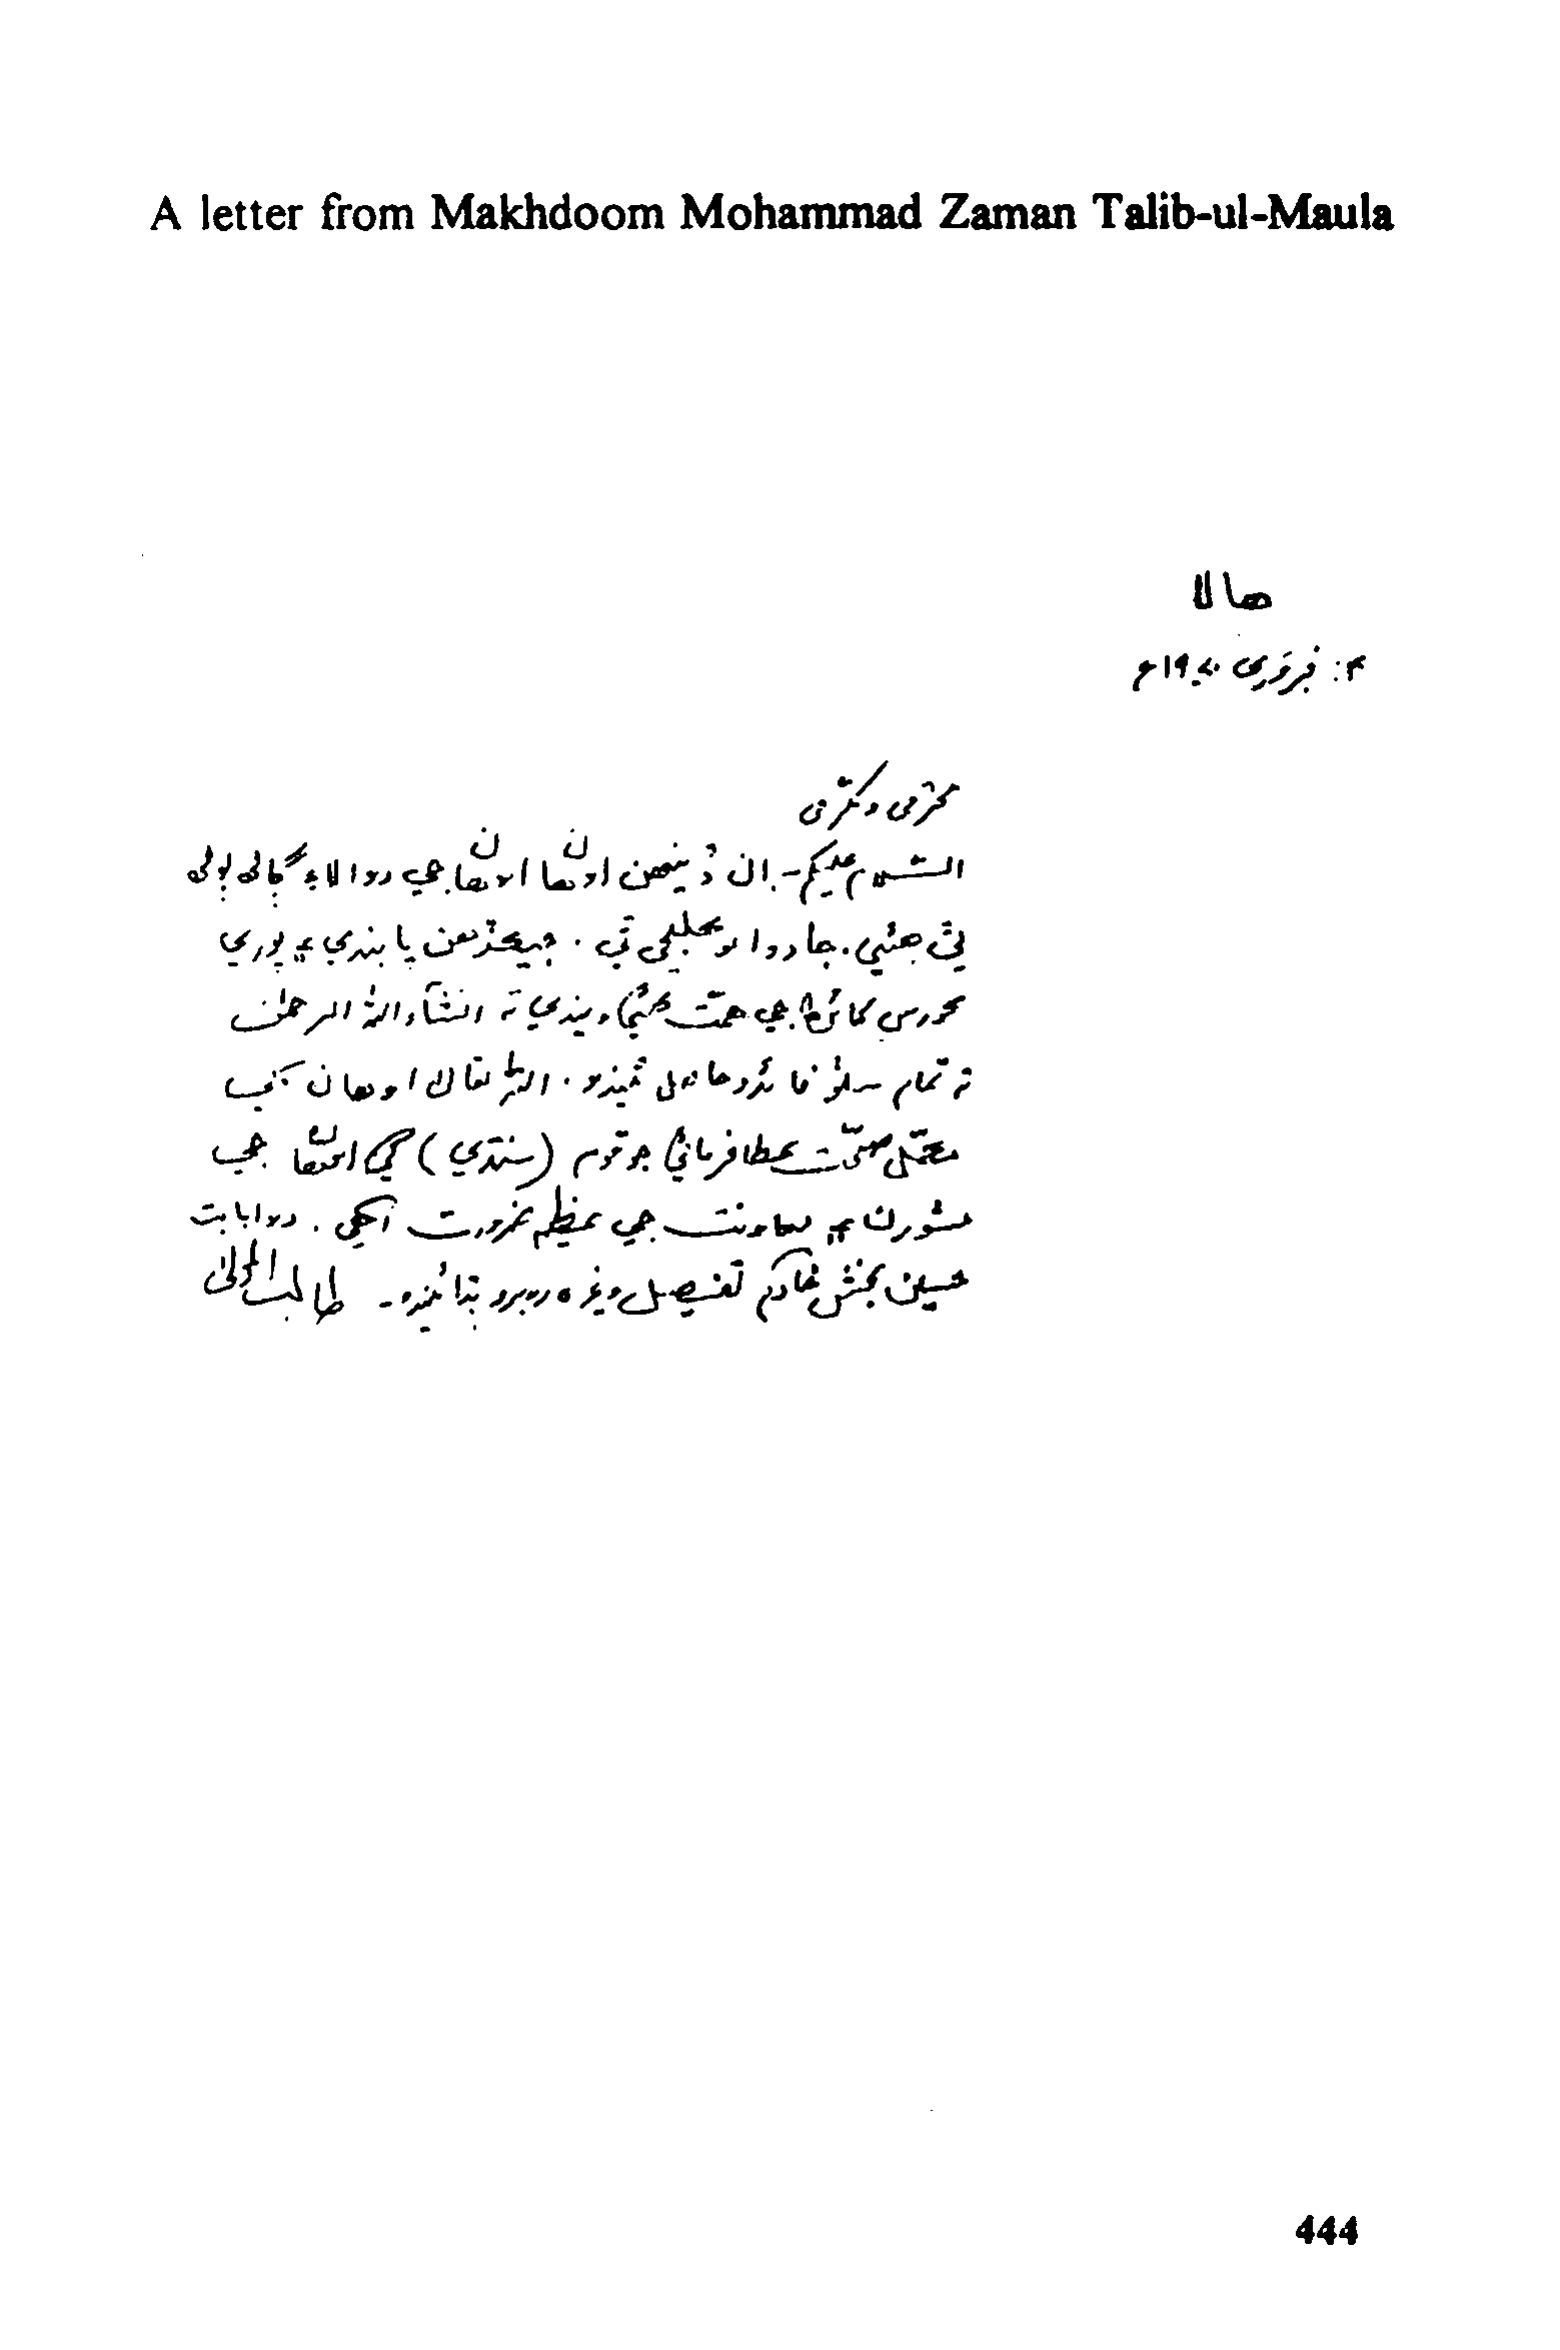 A letter from Makhdoom Mohammad Zaman Talib-ul-Maula
هالا
فروري ١٩٧٠ع
محترمي و مڪرمي
السلام عليڪم - ان ڏينهن اوهان جي دوا لاءِ ڳالهه ٻولهه
ٿي هئي. دوا موڪلجي ٿي. جيڪڏهن پابندي ۽ پوري
ڪورس کائڻ جي همت ڪئي ويندي ته انشاءَ الله الرحمان
ته تمام سٺو فائدو حاصل ٿيندو. الله تعاليٰ اوهان کي
مڪمل صحت عطا فرمائي جو قوم (سنڌي) کي اوهان جي
مشورن ۽ معاونت جي عظيم ضرورت آهي. دوا بابت
حسين بخش خادم تفصيل وغيره روبرو ٻڌائيندو - طالب المولىٰ
444